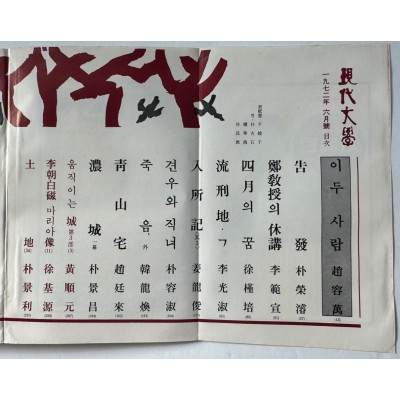 現代文學
一九七二年 六月號 目次
이 두 사람 趙容萬
告發 朴榮濬
鄭敎授의 休講 李範宣
四月의 꿈 徐槿培
流刑地·ㄱ 李光淑
入所記 姜龍俊
견우와 직녀 朴容淑
죽음 外 韓龍煥
靑山宅 趙廷來
濃城 朴景昌
움직이는 城 黃順元
李朝白磁 마리아像 徐基源
土地 朴景利